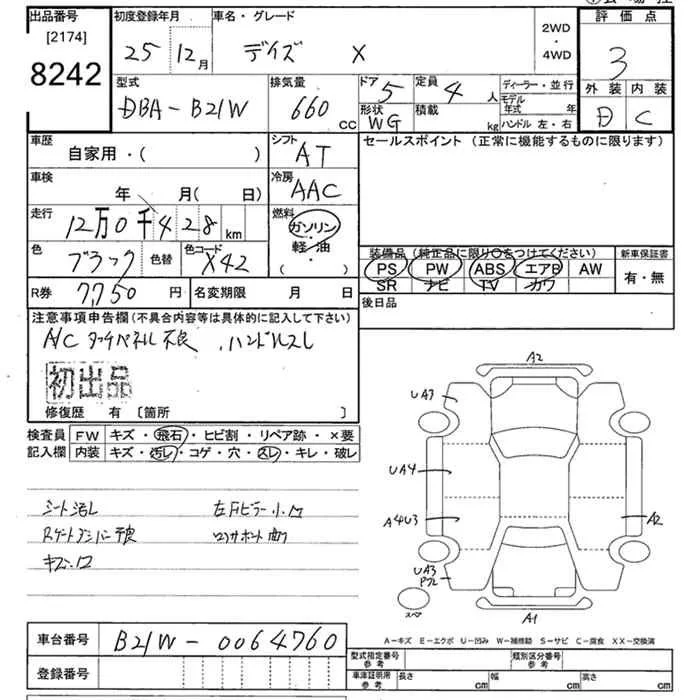 出品番号
[2174]
8242
初度登録年月
25 12月
車名・グレード
デイズ X
2WD
・
4WD
評価点
3
外装 内装
D C
型式
DBA-B21W
排気量
660 cc
ドア 5
定員 4 人
形状 WG
積載 kg
ディーラー・並行
モデル年式 年
ハンドル 左・右
車歴
自家用・( )
シフト
AT
セールスポイント (正常に機能するものに限ります)
車検
年 月( 日)
冷房
AAC
走行
12万0千428km
燃料
ガソリン
・
軽・油
( )
色
ブラック
色替
色コード
X42
装備品(純正品に限り〇をつけてください)
PS PW ABS エアB AW
SR ナビ TV カワ
新車保証書
有・無
R券
7,750 円
名変期限 月 日
後日品
注意事項申告欄(不具合内容等は具体的に記入して下さい)
A/C タッチパネル不良、ハンドルスレ
初出品
修復歴 有 [箇所 ]
検査員記入欄
FW キズ・飛石・ヒビ割・リペア跡・×要
内装 キズ・汚レ・コゲ・穴・スレ・キレ・破レ
シート汚レ
A2
UA7
UA4
A4U3
A2
UA3
スペア
A1
A-キズ E-エクボ U-凹み W-補修跡 S-サビ C-腐食 XX-交換済
車台番号
B21W-0064760
登録番号
型式指定番号
参考
類別区分番号
参考
車庫証明用
参考
長さ cm
幅 cm
高さ cm